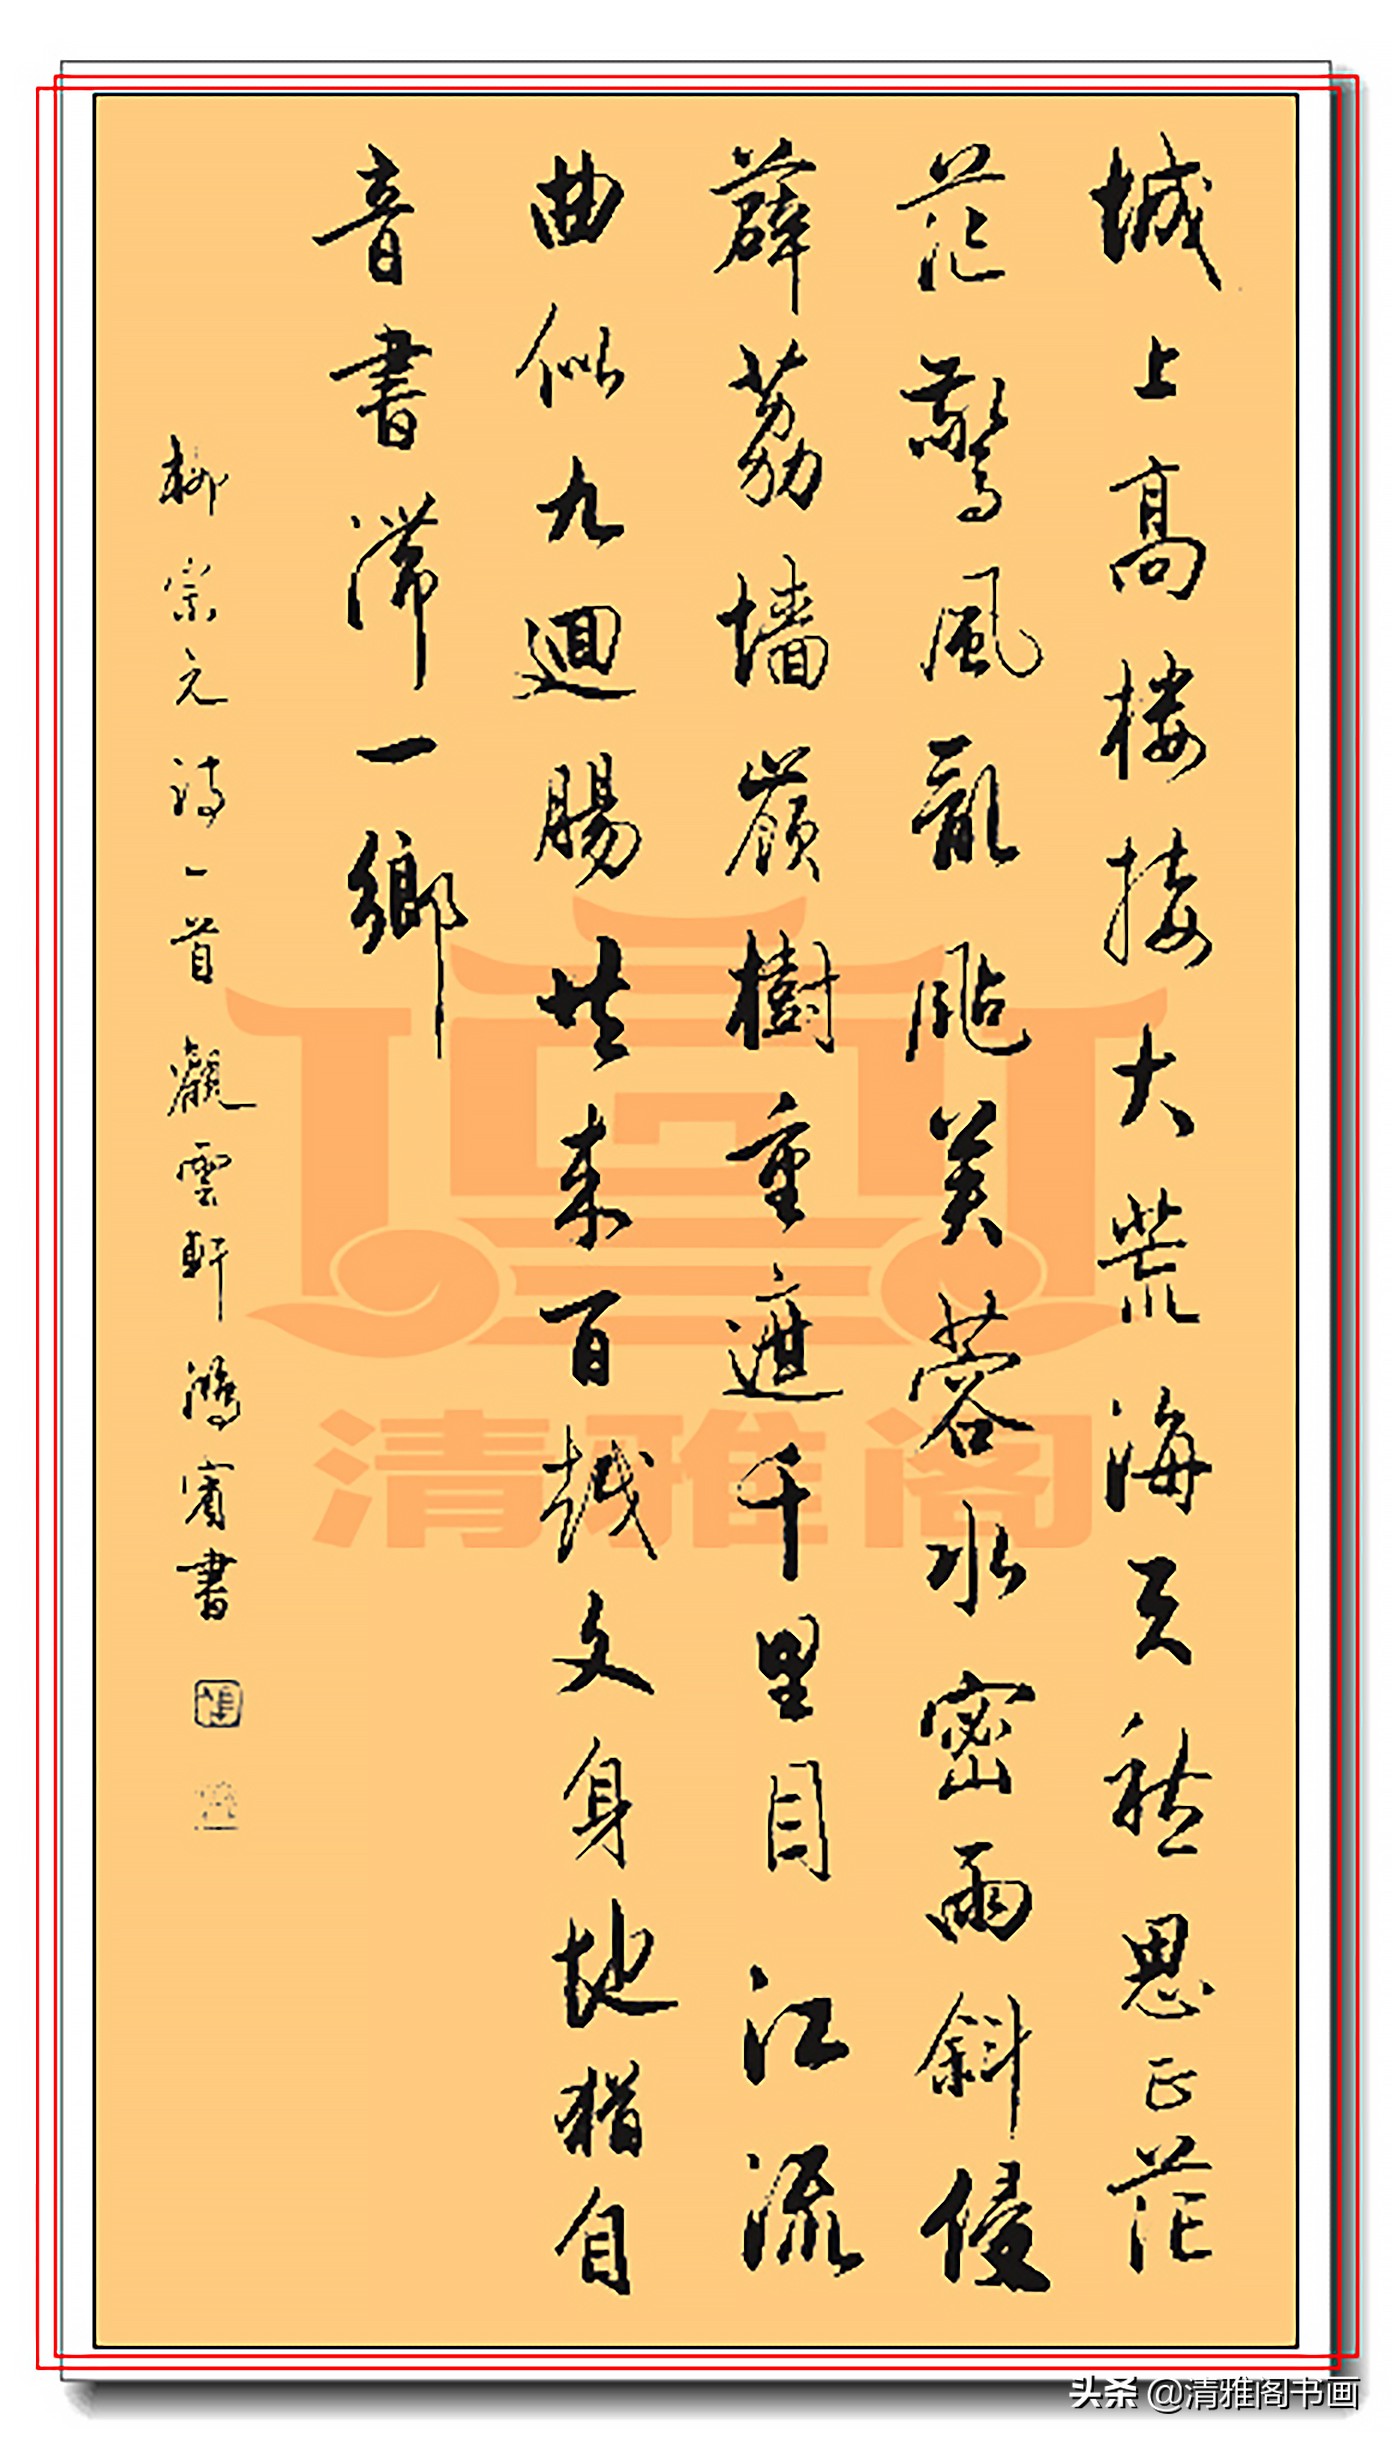 城上高楼接大荒海天愁思正茫
茫驚風亂飐芙蓉水密雨斜侵
薜荔墙嶺樹重遮千里目江流
曲似九迴腸共来百越文身地猶自
音書滞一鄉
柳宗元诗一首 觀雲軒鴻賓書
清雅阁
头条 @清雅阁书画